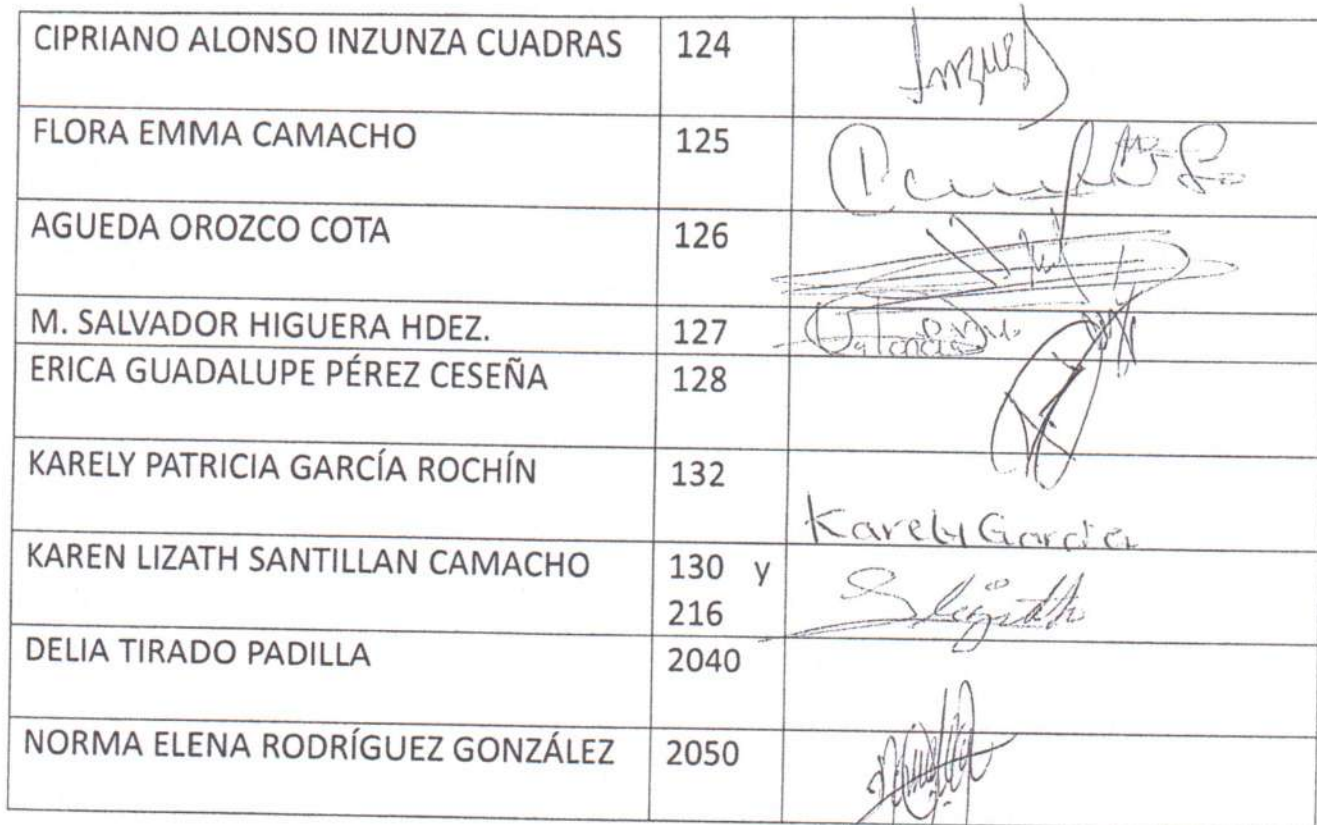 CIPRIANO ALONSO INZUNZA CUADRAS 124
FLORA EMMA CAMACHO 125
AGUEDA OROZCO COTA 126
M. SALVADOR HIGUERA HDEZ. 127
ERICA GUADALUPE PÉREZ CESEÑA 128
KARELY PATRICIA GARCÍA ROCHÍN 132
Karely Garcia
KAREN LIZATH SANTILLAN CAMACHO 130 y
216
DELIA TIRADO PADILLA 2040
NORMA ELENA RODRÍGUEZ GONZÁLEZ 2050